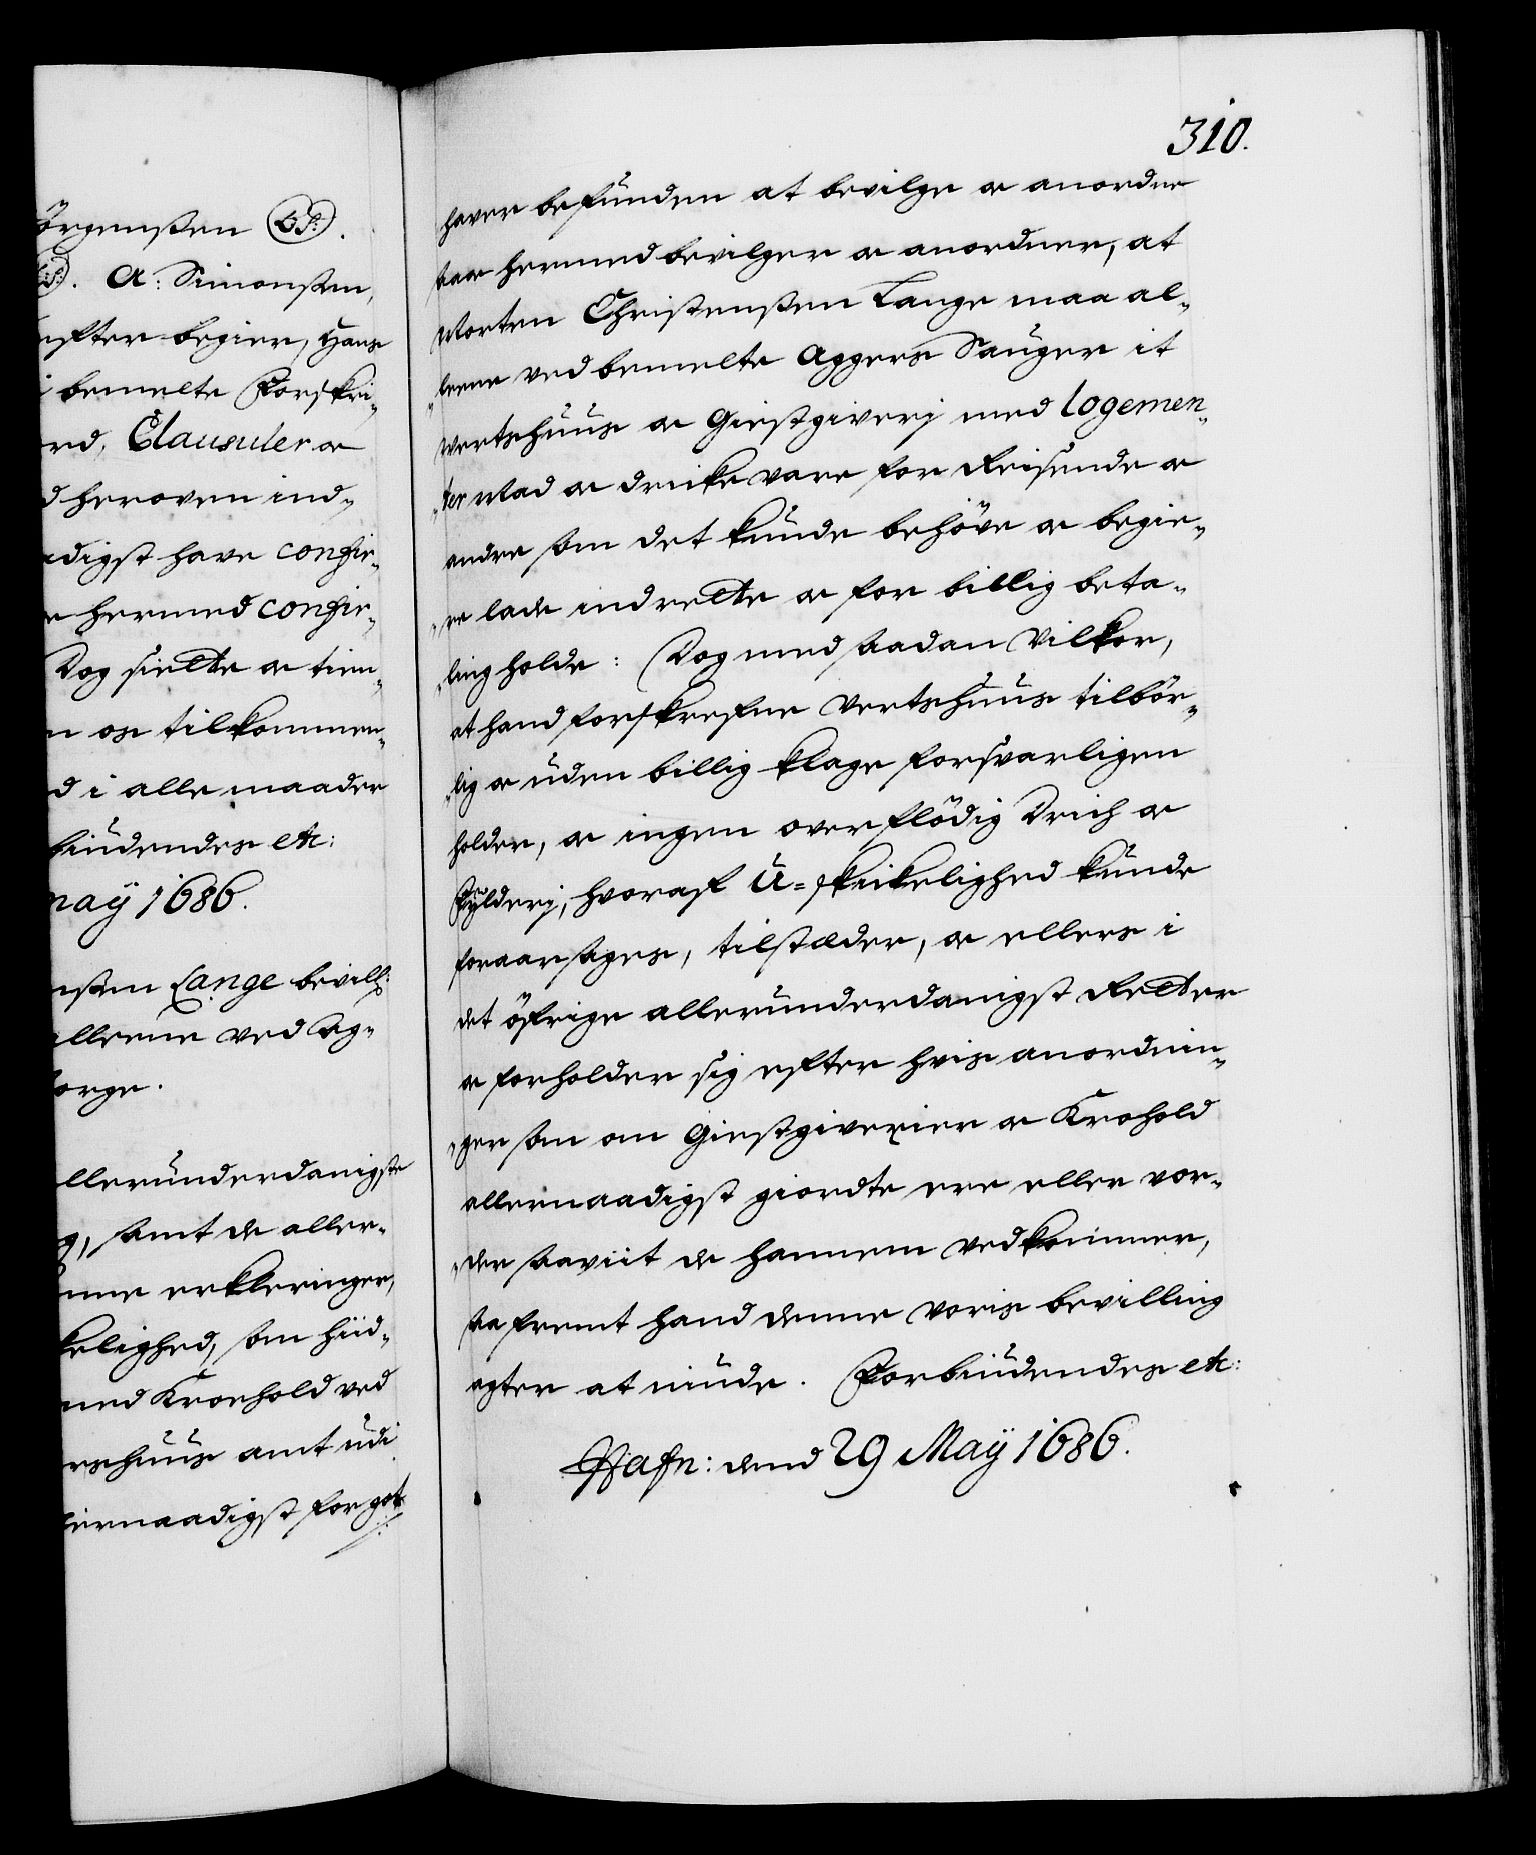 örgenssen L:S:.
L:S:. A: Simonssen,
efter begier, Hans
i bemelte Forskri-
ord, Clausuler oc
d heroven ind-
adigst have confir-
e hermed confir-
Dog sielte oc tien-
n os tilkommen-
d i alle maader
biudendes etc:
may 1686.
nssen Lange bevill:
alleene ved Ag-
orge.
allerunderdanigste
g, samt de aller-
nne erkleringer,
kelighed, som hid-
med Kroehold ved
rshuus amt udi
lernaadigst for got
310.
haver befunden at bevilge oc anordne
saa hermed bevilger oc anordner, at
Morten Christenssen Lange maa al-
leene ved bemelte Aggers Sauger it
vertshuus oc Giestgiverj med logemen-
ter Mad oc dricke vare for Reisende oc
andre som det kunde behöve oc begie-
re lade indrette oc for billig beta-
ling holde: Dog med saadan Vilkor,
at hand forskrefne Vertshuus tilbör-
lig oc uden billig klage forsvarligen
holder, oc ingen overflödig Drich oc
Fylderj, hvoraf U-skickelighed kunde
foraarsages, tilsteder, oc ellers i
det öfrige allerunderdanigst Retter
oc forholder sig efter hvis anordnin-
ger som om Giestgiverier oc Krohold
allernaadigst giordte ere eller vor-
der saaviit de hannem vedkommer,
saafremt hand denne voris bevilling
agter at niude. Forbiudendes etc:
Hafn: dend 29 May 1686.